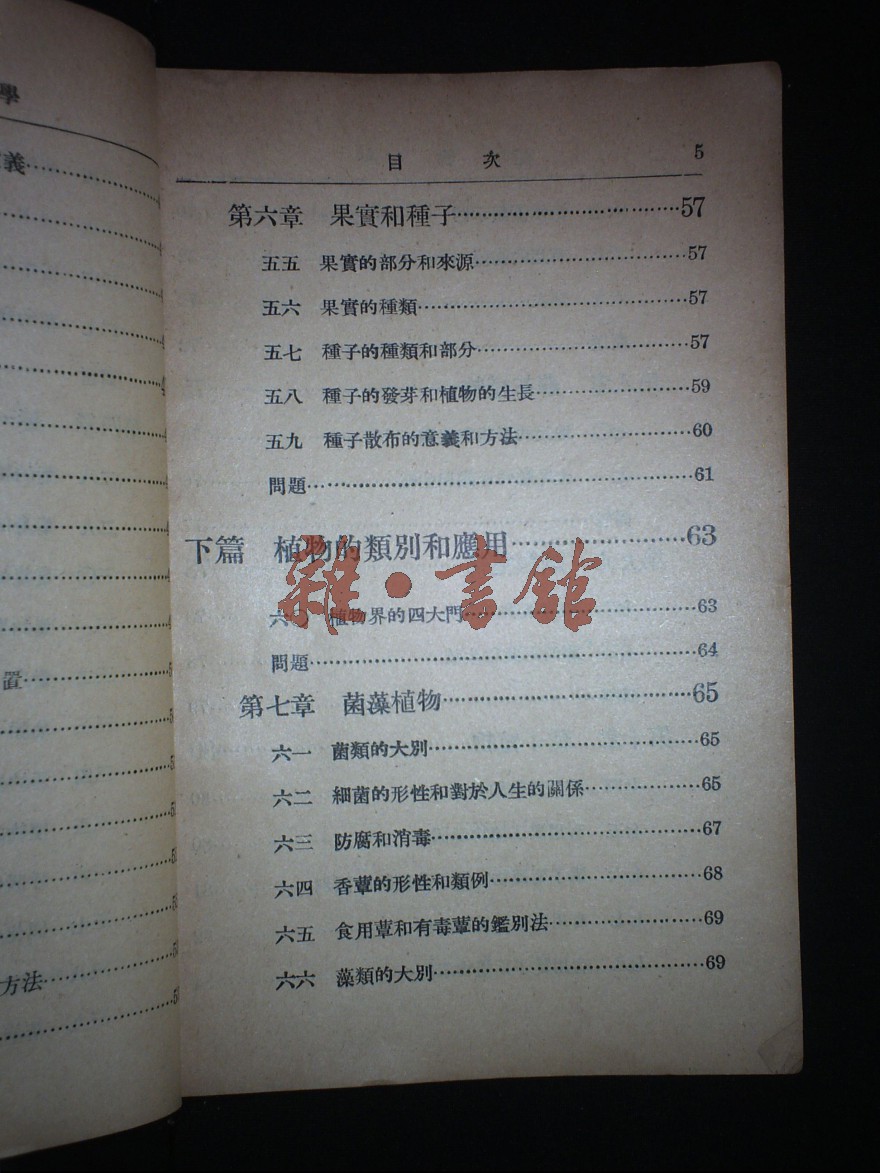 學
義
置
方法
目次 5
第六章 果實和種子 57
五五 果實的部分和來源 57
五六 果實的種類 57
五七 種子的種類和部分 57
五八 種子的發芽和植物的生長 59
五九 種子散布的意義和方法 60
問題 61
下篇 植物的類別和應用 63
雜·書館
六〇 植物界的四大門 63
問題 64
第七章 菌藻植物 65
六一 菌類的大別 65
六二 細菌的形性和對於人生的關係 65
六三 防腐和消毒 67
六四 香蕈的形性和類例 68
六五 食用蕈和有毒蕈的鑑別法 69
六六 藻類的大別 69